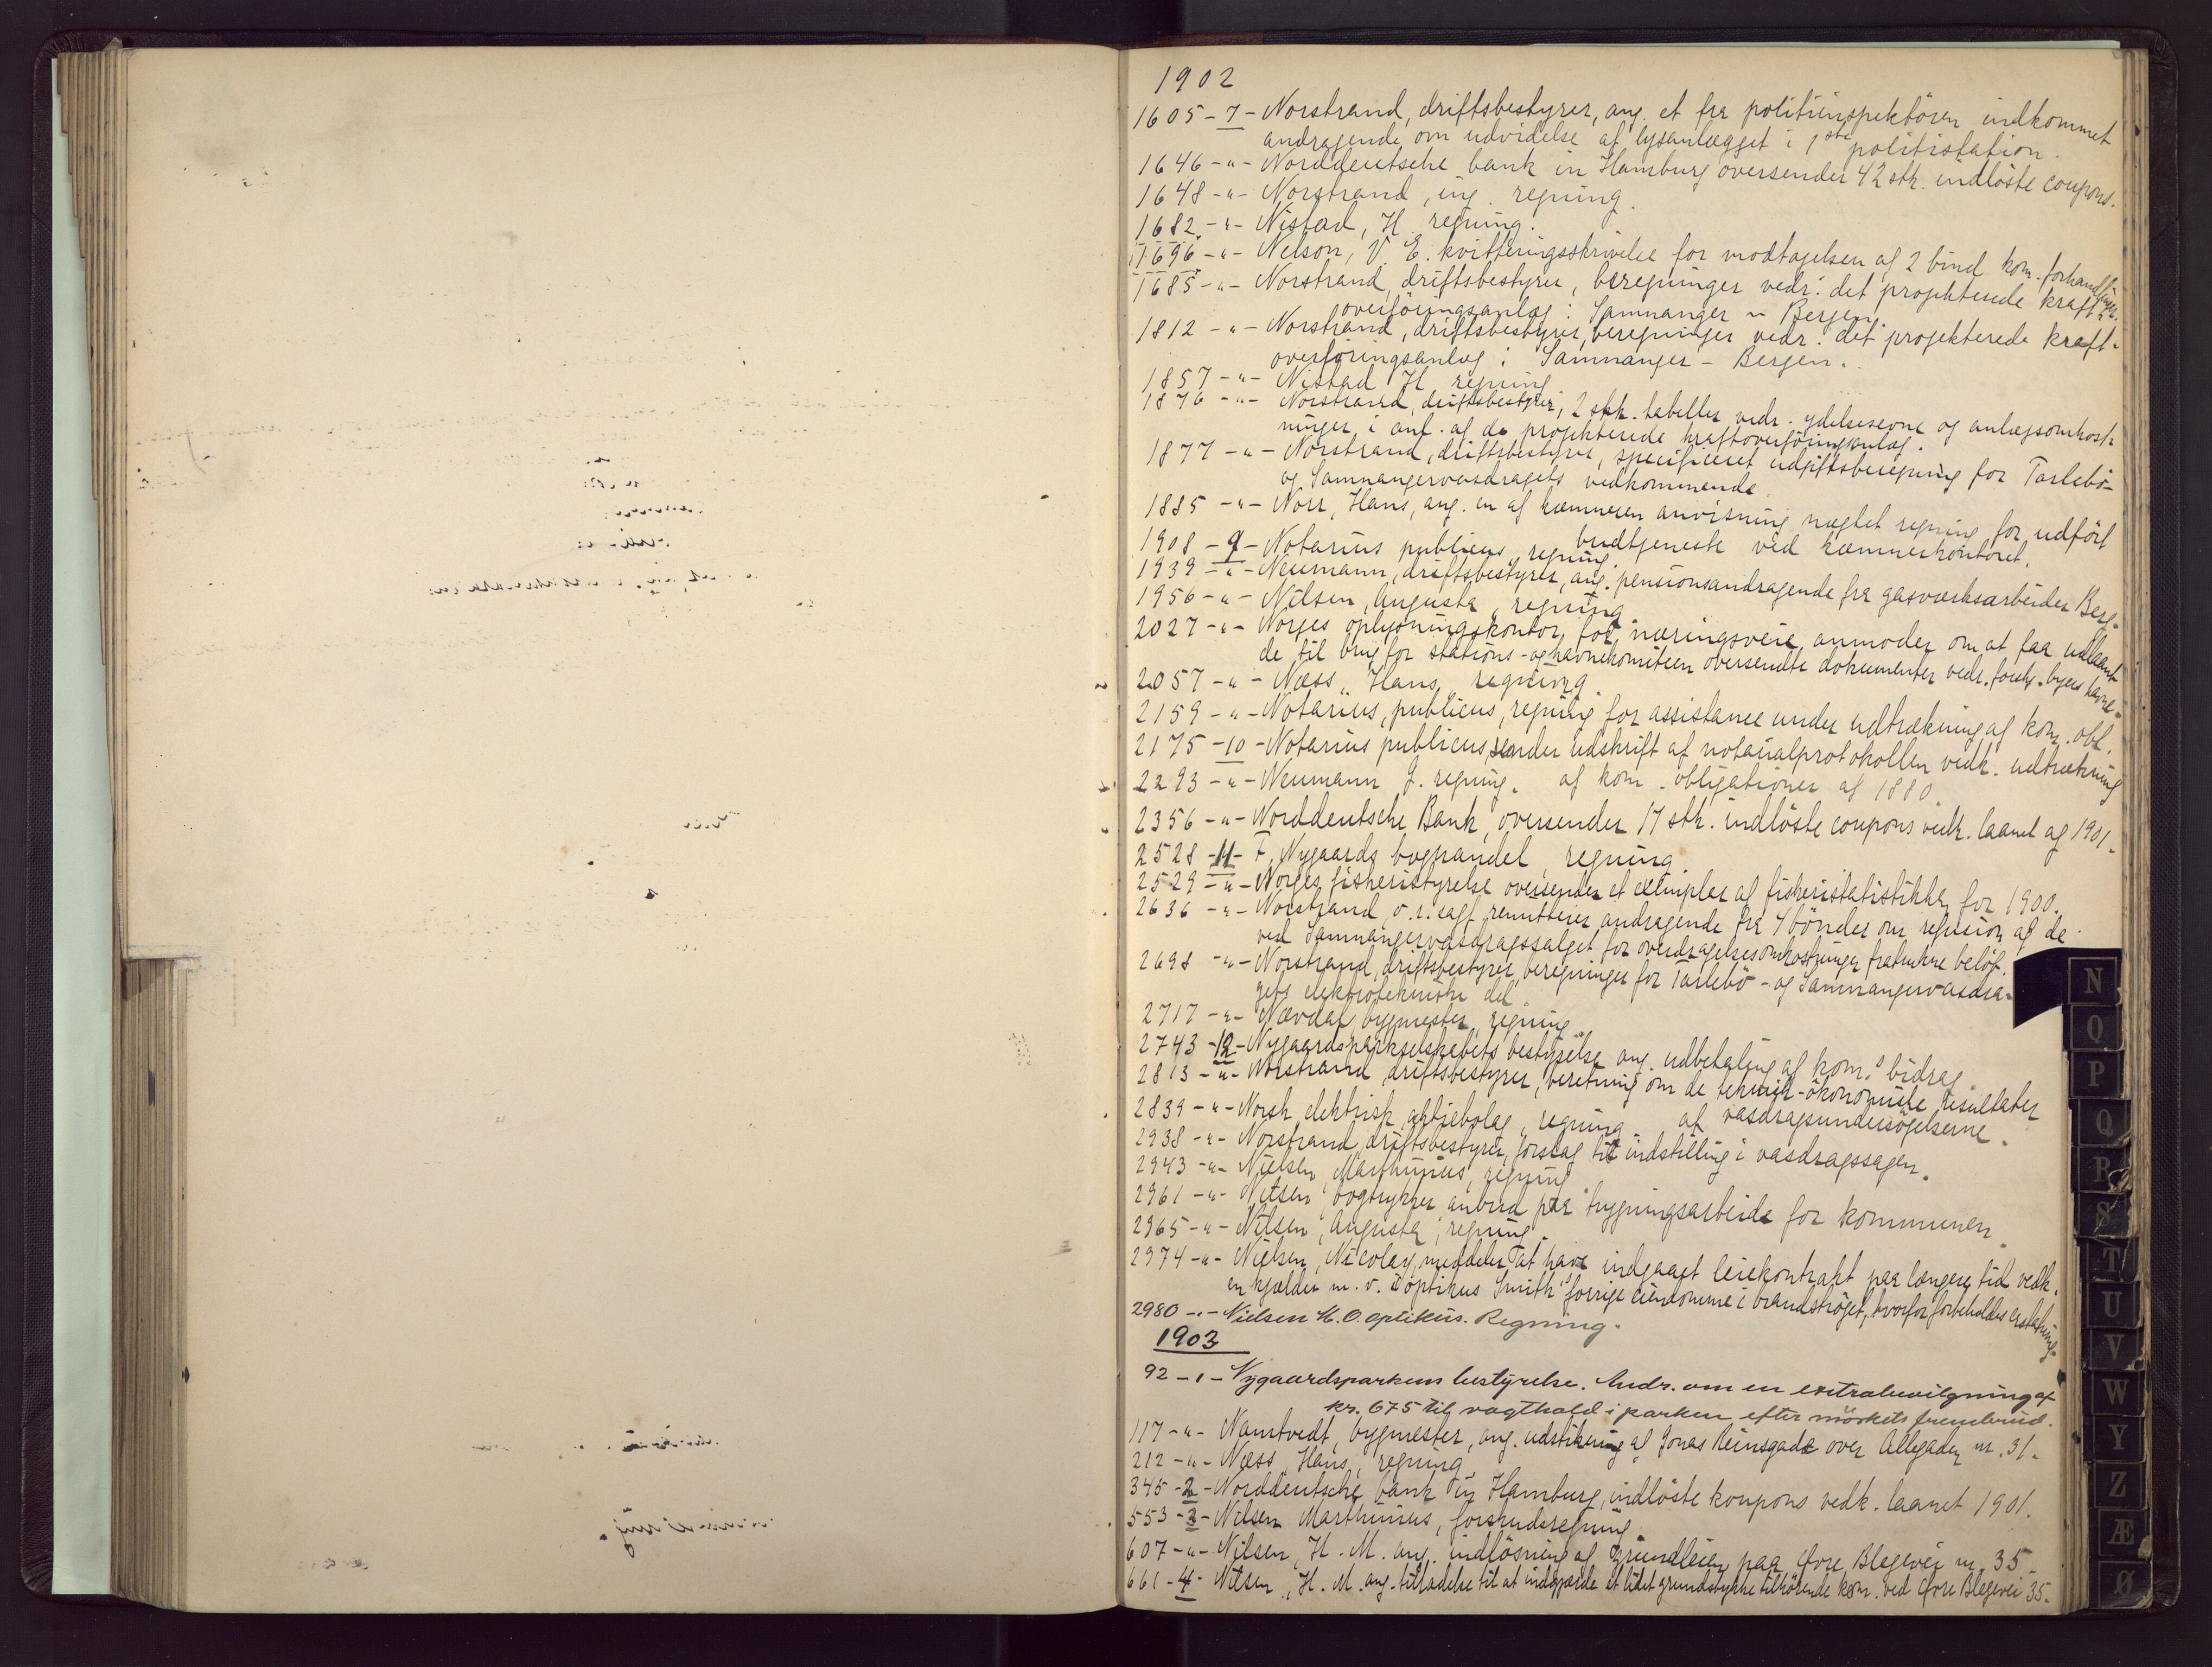 1902
1605 - 7 - Norstrand, driftsbestyrer, ang. et fra politiinspektören indkommet
andragende om udvidelse af lysanlægget i 1ste politistation.
1646 - " - Norddeutsche bank in Hamburg oversender 42 stk. indlöste coupons.
1648 - " - Norstrand, ing. regning.
1682 - " - Nistad, H. regning.
1696 - " - Nelson, V. E. kvitteringsskrivelse for modtagelsen af 2 bind kom. forhandlinger.
1685 - " - Norstrand, driftsbestyrer, beregninger vedr. det projekterede kraft-
overföringsanlæg: Samnanger - Bergen.
1812 - " - Norstrand, driftsbestyrer, beregninger vedr. det projekterede kraft-
overföringsanlæg: Samnanger - Bergen.
1857 - " - Nistad H. regning
1876 - " - Norstrand, driftsbestyrer, 2 stk. tabeller vedr. ydelsesevne og anlægsomkost-
ninger i anl. af de projekterede kraftoverföringsanlæg.
1877 - " - Norstrand, driftsbestyrer, specificeret udgiftsberegning for Tarlebö-
og Samnangervasdragets vedkommende.
1885 - " - Norr, Hans, ang. en af kæmneren anvisning nægtet regning for udfört
budtjeneste ved kæmnerkontoret.
1908 - 9 - Notarius publicus, regning.
1939 - " - Neumann, driftsbestyrer, ang. pensionsandragende fra gasværksarbeider Berg.
1956 - " - Nilsen, Augusta, regning.
2027 - " - Norges oplysningskontor for næringsveie anmoder om at faa udlaant
de til brug for stations- og havnekomiteen oversendte dokumenter vedr. forskj. byers havne.
2057 - " - Næss, Hans, regning.
2159 - " - Notarius publicus, regning for assistance under udtrækning af kom. obl.
2175 - 10 - Notarius publicus, sender udskrift af notarialprotokollen vedk. udtrækning
af kom. obligationer af 1880.
2293 - " - Neumann J. regning.
2356 - " - Norddeutsche Bank, oversender 17 stk. indlöste coupons vedk. laanet af 1901.
2528 - 11 - F. Nygaards boghandel, regning.
2529 - " - Norges fiskeristyrelse oversender et exemplar af fiskeristatistikken for 1900.
2636 - " - Norstrand, o.r.sagf. remitterer andragende fra 4 bönder om refusion af de
ved Samnangervasdragssalget for overdragelsesomkostninger fratrukne belöp.
2698 - " - Norstrand, driftsbestyrer, beregninger for Tarlebö- og Samnangervasdra-
gets elektrotekniske del.
2717 - " - Nævdal, bygmester, regning.
2743 - 12 - Nygaardsparkselskabets bestyrelse ang. udbetaling af kom.s bidrag.
2813 - " - Norstrand, driftsbestyrer, beretning om de teknisk-ökonomiske resultater
af vasdragsundersögelserne.
2839 - " - Norsk elektrisk aktiebolag, regning.
2938 - " - Norstrand, driftsbestyrer, forslag til indstilling i vasdragssagen.
2943 - " - Nielsen, Marthinius, regning
2961 - " - Nilsen, bogtrykker anbud paa trygningsarbeide for kommunen.
2965 - " - Nilsen, Augusta, regning.
2974 - " - Nielsen, Nicolay, meddeler at have indgaaet leiekontrakt paa længere tid vedk.
en kjælder m.v. i optikus Smith's forrige eiendomme i brandströget, hvorfor forbeholdes erstatning.
2980 - " - Nielsen M. O. optikus. Regning.
1903
92 - 1 - Nygaardsparkens bestyrelse. Andr. om en extrabevilgning af
kr. 675 til vagthold i parken efter mörkets frembrud.
117 - " - Namtvedt, bygmester, ang. udstikning af Jonas Reinsgade over Allegaden nr. 31.
212 - " - Næss, Hans, regning.
345 - 2 - Norddeutsche bank in Hamburg, indlöste koupons vedk. laanet 1901.
553 - 3 - Nilsen Marthinius, forskudsregning.
607 - " - Nilsen, H. M. ang. indlösning af grundleien paa Övre Blegevei nr. 35.
661 - 4 - Nilsen, H. M. ang. tilladelse til at indgjærde et lidet grundstykke tilhörende kom. ved Övre Blegevei 35.
N
O
P
Q
R
S
T
U
V
W
Y
Z
Æ
Ø